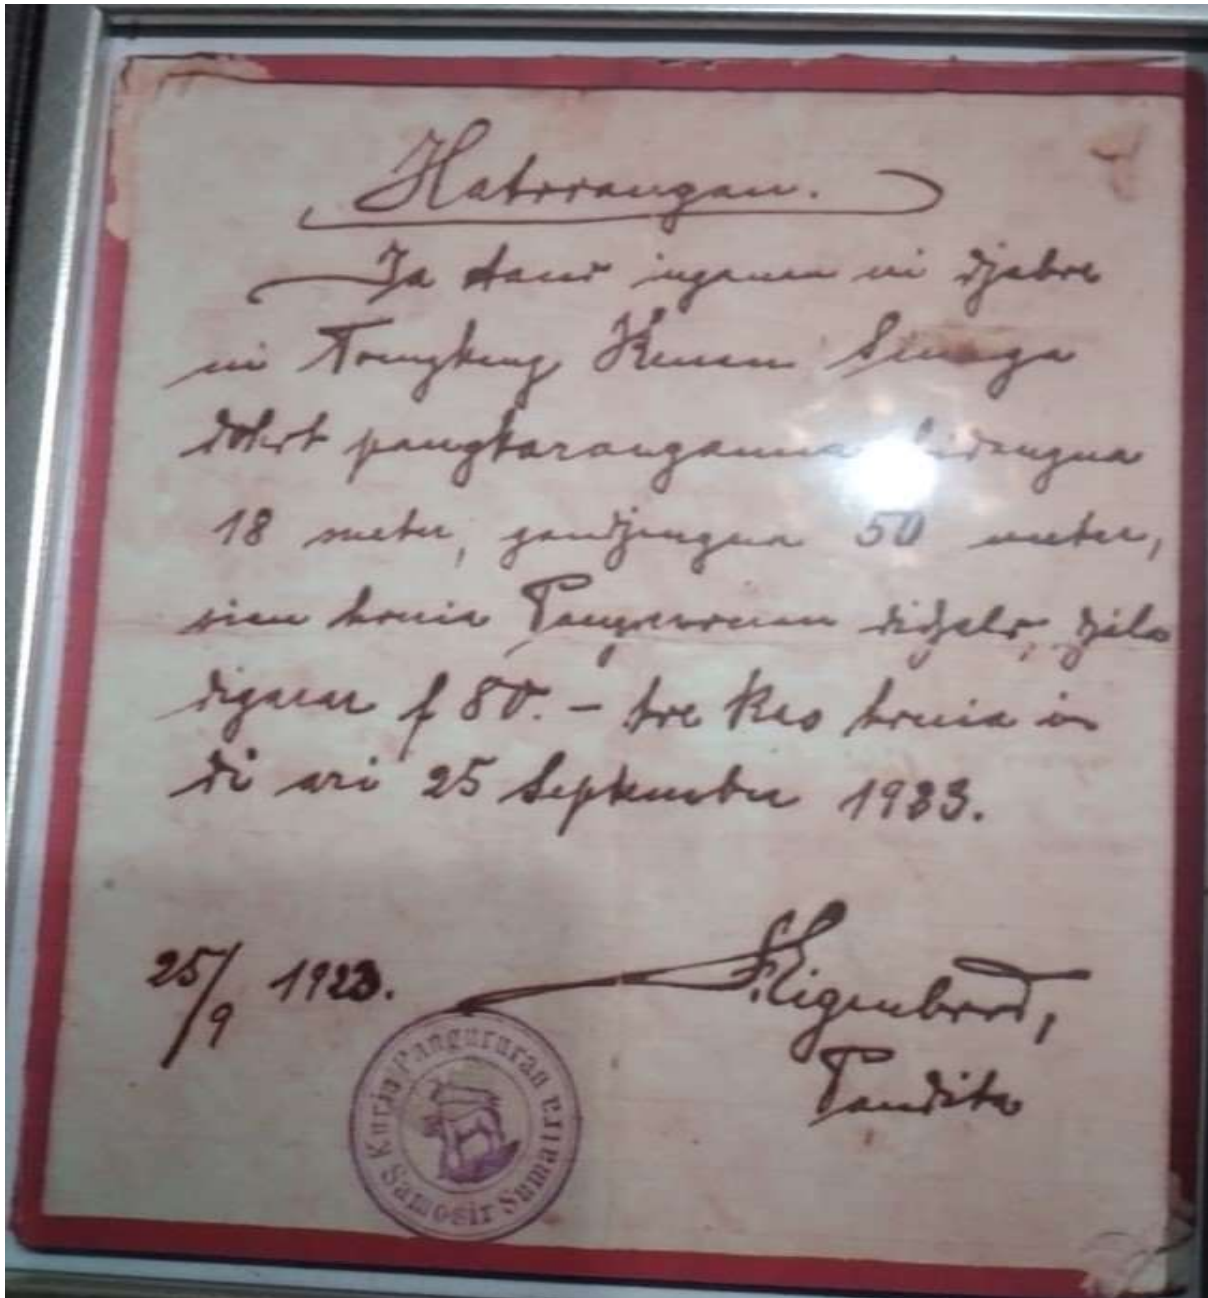 Hatorangan.
Ja tano inganan ni djabu
ni Kenan Sinaga
dohot pangkaranganna bidangna
18 meter, gandjangna 50 meter,
sian huria Pangururan didjalo, djala
digarar f 80.– tu kas huria i
di ari 25 September 1923.
25/9 1923.
Eigenbrod,
Pandita
Kuria Pangururan
Samosir Sumatra